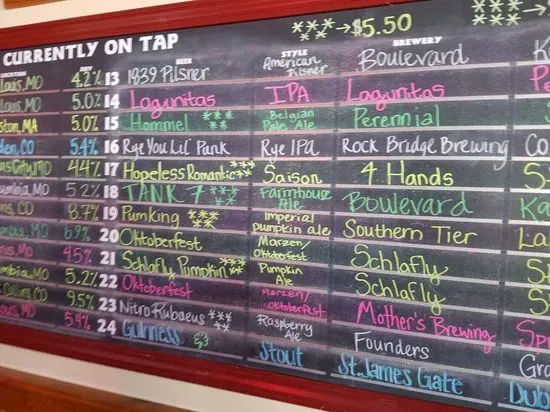 ***→$5.50 ***→
CURRENTLY ON TAP
LOCATION ABV BEER STYLE BREWERY
Louis, MO 4.2% 13 1839 Pilsner American Pilsner Boulevard K
Louis, MO 5.0% 14 Lagunitas IPA Lagunitas Pe
ston, MA 5.0% 15 Hommel ***** Belgian Pale Ale Perennial
den, CO 5.4% 16 Rye You Lil' Punk Rye IPA Rock Bridge Brewing Co
as City, MO 4.4% 17 Hopeless Romantic ***** Saison 4 Hands S
umbia, MO 5.2% 18 TANK 7 ***** Farmhouse Ale Boulevard Ka
ns, CO 8.7% 19 Pumking ****** Imperial pumpkin ale Southern Tier La
6.9% 20 Oktoberfest Marzen/ oktoberfest Schlafly S
MO 4.5% 21 Schlafly Pumpkin ***** Pumpkin Ale Schlafly S
umbia, MO 5.2% 22 Oktoberfest Marzen/ oktoberfest Mother's Brewing Sp
Collins, CO 9.5% 23 Nitro Rubaeus ***** Raspberry Ale Founders Gra
Louis, MO 5.4% 24 Guinness Stout St. James Gate Dub